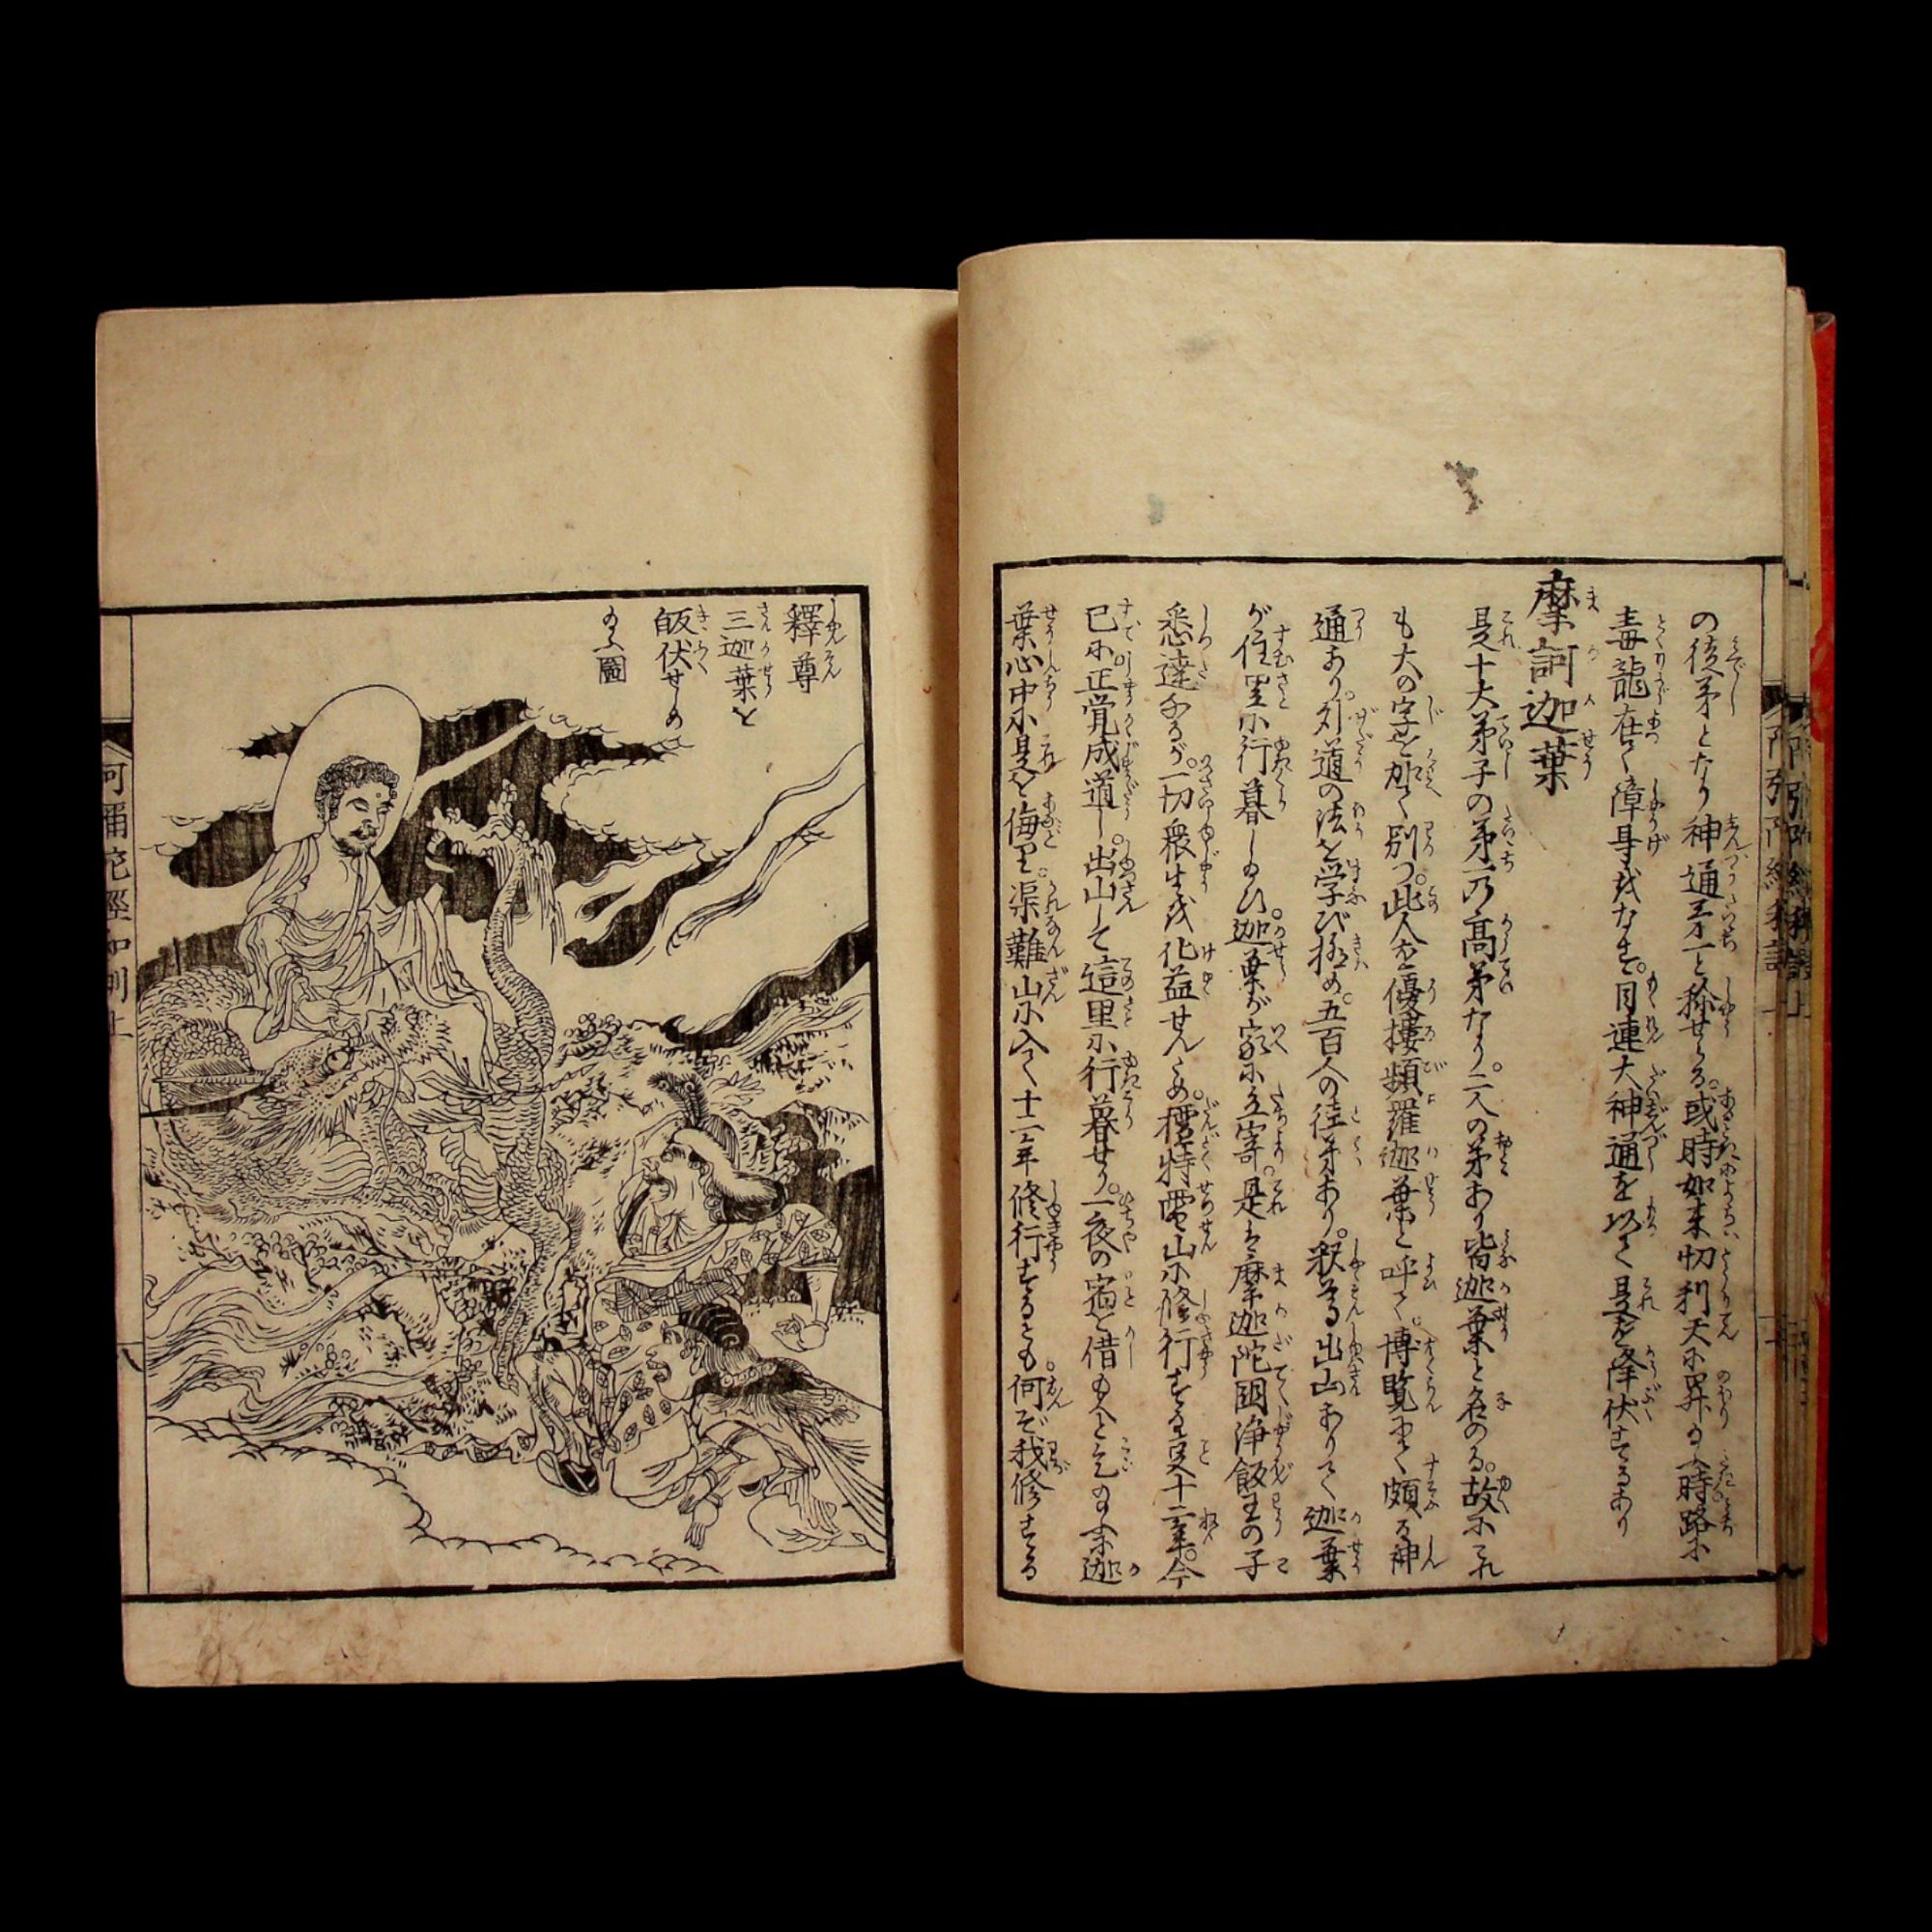 の徒弟となり神通第一と称せらる。或時如来忉利天に昇る時路に
毒龍在て障导をなす。目連大神通を以て是を降伏するあり
摩訶迦葉
是十大弟子の第一乃高弟なり。二人の弟あり皆迦葉と名のる。故にこれ
も大の字を加て別つ。此人を優樓頻羅迦葉と呼て。博覧にして頗る神
通あり。外道の法を学び極め。五百人の徒弟あり。釈尊出山ありて迦葉
が住里に行暮し給ひ。迦葉が家に立寄。是は摩迦陀国浄飯王の子
悉達なるが。一切衆生を化益せんため。檀特雪山に修行する事十二年。今
已に正覚成道し。出山して這里に行暮せり。一夜の宿を借給へと乞給ふ迦
葉心中に是を侮里。渠難山に入て十二年修行するとも何ぞ我修する
釋尊
三迦葉を
皈伏せしめ
給ふ圖
阿彌陀經和訓上
八